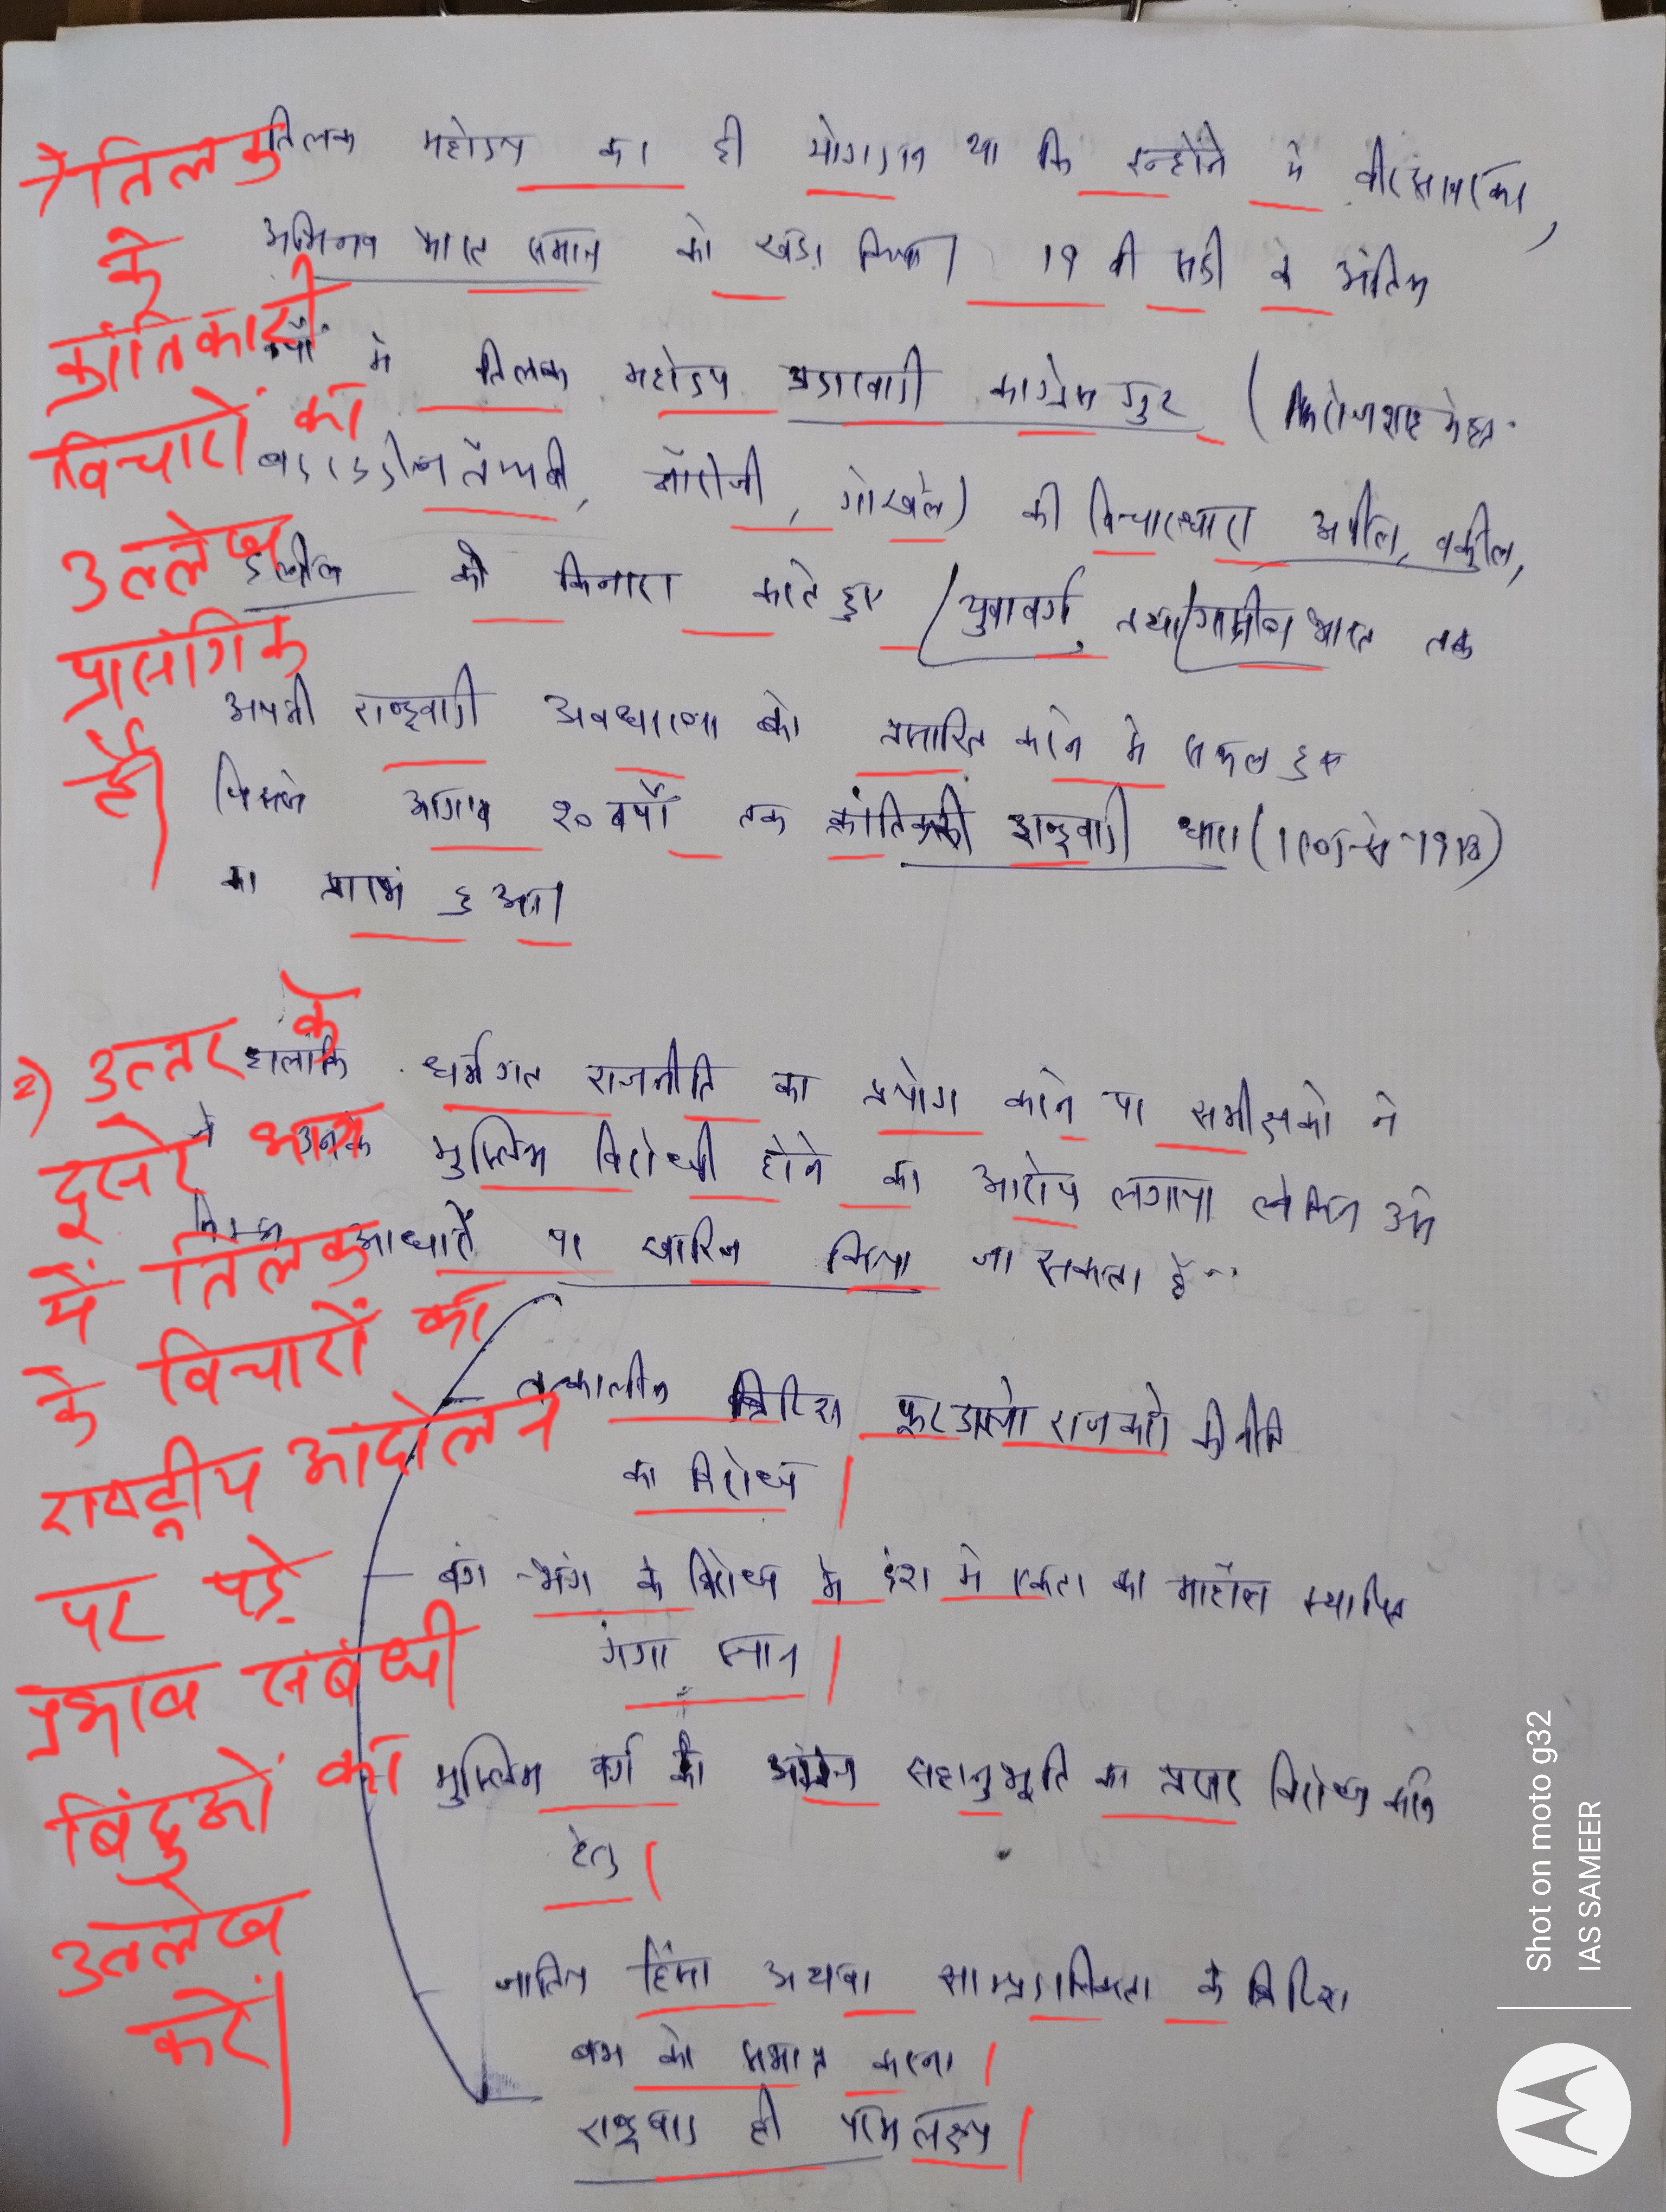 तिलक महोदय का ही योगदान था कि इन्होंने में वीर सावरकर,
अभिनव भारत समाज को खड़ा किया। 19 वी सदी के अंतिम
वर्षों में तिलक महोदय उदारवादी कांग्रेस गुट (फिरोजशाह मेहता
बदरुद्दीन तैय्यबी, नौरोजी, गोखले) की विचारधारा अपील, वकील,
दलील को किनारा करते हुए युवावर्ग तथा ग्रामीण भारत तक
अपनी राष्ट्रवादी अवधारणा को प्रसारित करने में सफल हुए
जिससे आगामी 20 वर्षों तक क्रांतिकारी राष्ट्रवादी धारा
का प्रारंभ हुआ।
हालांकि धर्मगत राजनीति का प्रयोग करने पर समीक्षको ने
उनके मुस्लिम विरोधी होने का आरोप लगाया लेकिन उसे
निम्न आधारों पर खारिज किया जा सकता है--
तत्कालीन ब्रिटिश फूट डालो राज करो की नीति
का विरोध
बंग-भंग के विरोध में देश में एकता का माहौल स्थापित
गंगा स्नान
मुस्लिम वर्ग की सहानुभूति का प्रखर विरोध करने
हेतु
जातिय हिंसा अथवा साम्प्रदायिकता के ब्रिटिश
बम को समाप्त करना
राष्ट्रवाद ही परम लक्ष्य
→ तिलक
के
क्रांतिकारी
विचारों का
उल्लेख
प्रासंगिक
है।
2) उत्तर के
दूसरे भाग
में तिलक
के विचारों का
राष्ट्रीय आंदोलन
पर पड़े
प्रभाव संबंधी
बिंदुओं का
उल्लेख
करें।
Shot on moto g32
IAS SAMEER